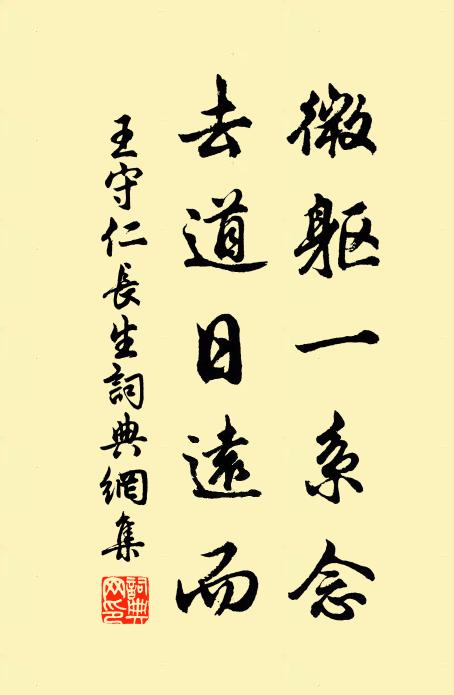 微軀一系念
去道日遠而
王守仁長生詞典網集
詞典
网印